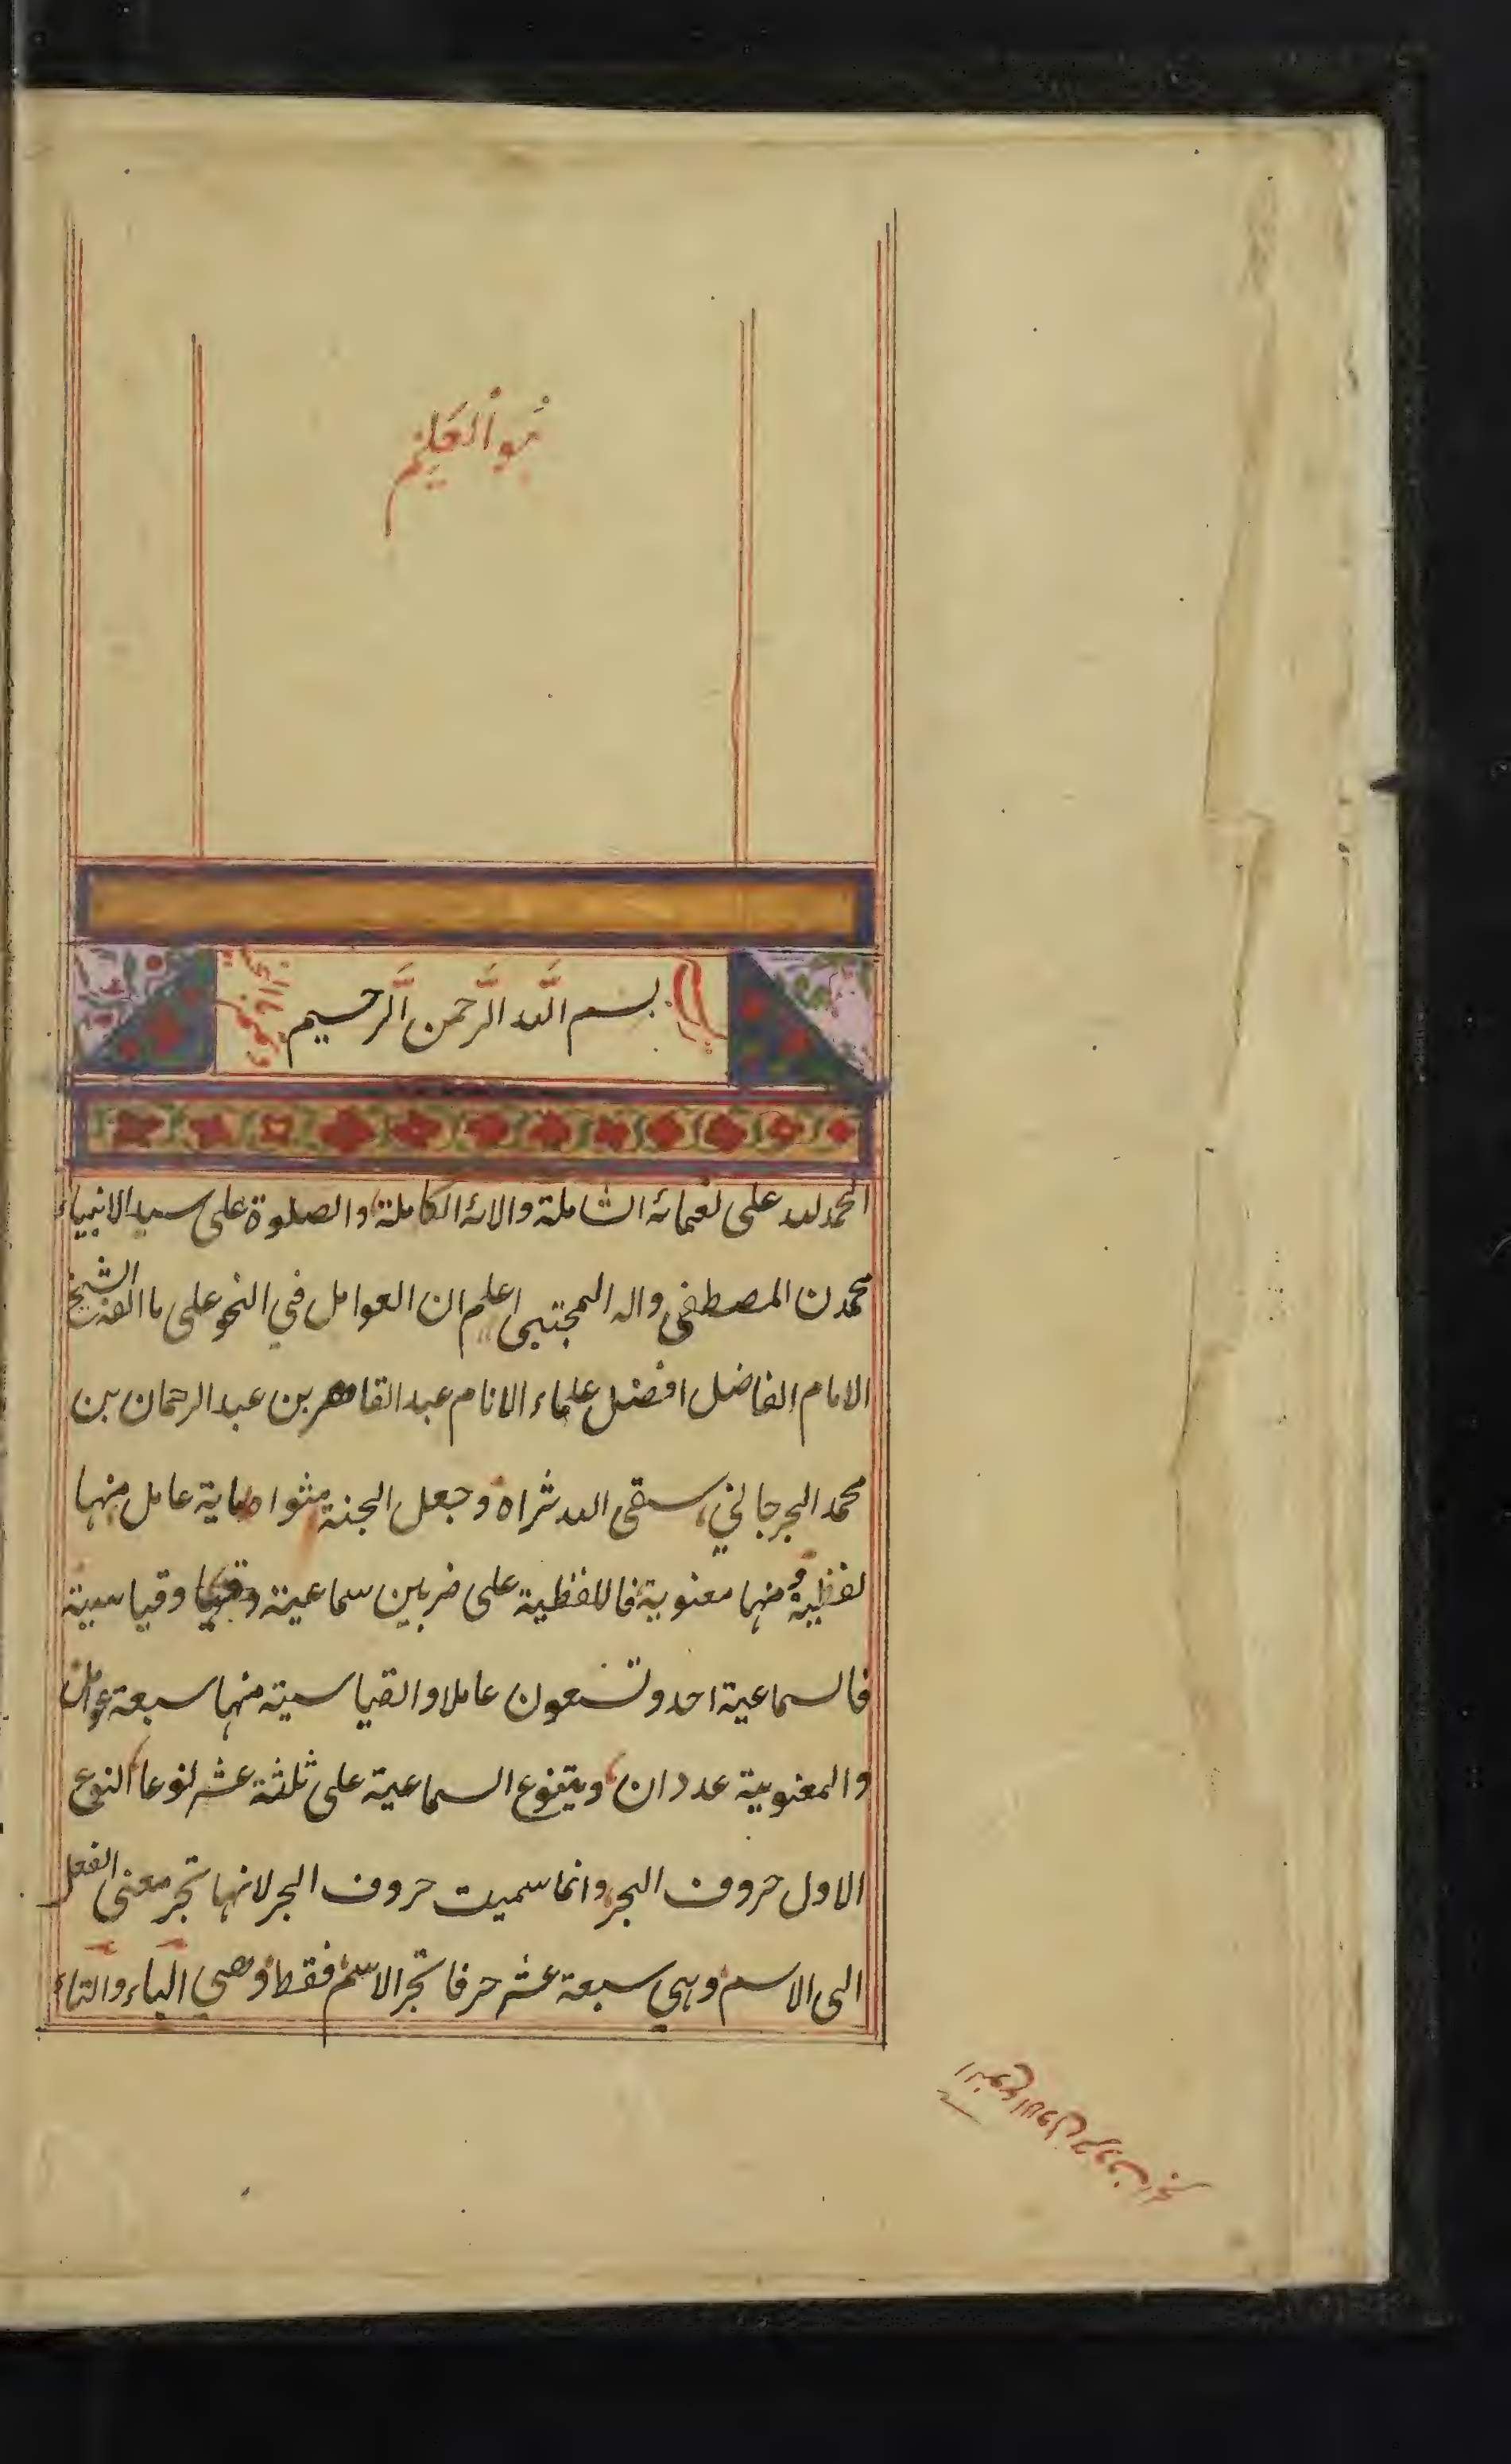 هو العليم
بسم الله الرحمن الرحيم
الحمد لله على نعمائه الشاملة والائه الكاملة والصلوة على سيد الانبياء
محمدن المصطفى واله المجتبى اعلم ان العوامل في النحو على ما الفه الشيخ
الامام الفاضل افضل علماء الانام عبد القاهر بن عبد الرحمان بن
محمد الجرجاني سقى الله ثراه وجعل الجنة مثواه ماية عامل منها
لفظية ومنها معنوية فاللفظية على ضربين سماعية وقياسية
فالسماعية احد وتسعون عاملا والقياسية منها سبعة عوامل
والمعنوية عددان ويتنوع السماعية على ثلثة عشر نوعا النوع
الاول حروف الجر وانما سميت حروف الجر لانها تجر معنى الفعل
الى الاسم وهي سبعة عشر حرفا تجر الاسم فقط وهي الباء والتاء